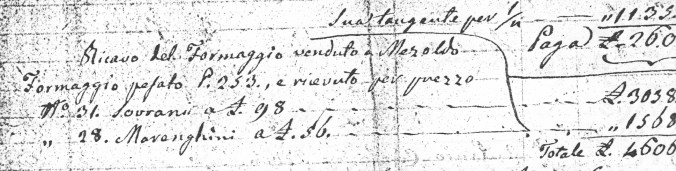 Sua tangente per „ 1133.
Paga £. 260
Ricavo del Formaggio venduto a Mezoldo
Formaggio pesato P. 253., e ricevuto per prezzo
N.° 31. Sovrani a £. 98 £. 3038
„ 28. Marenghini a £. 56. „ 1568
Totale £. 4606